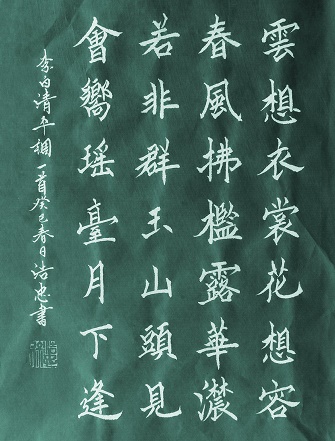 雲想衣裳花想容
春風拂檻露華濃
若非群玉山頭見
會嚮瑤臺月下逢
李白清平調一首癸巳春日浩忠書